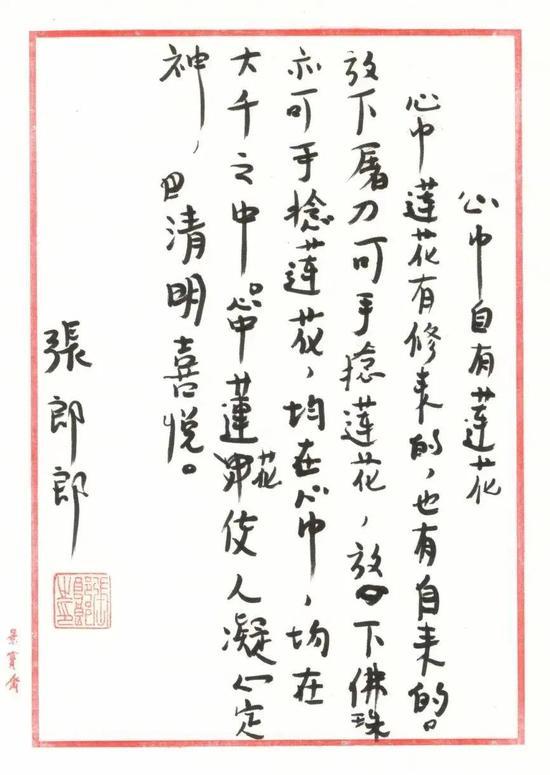 心中自有莲花
心中蓮花有修来的，也有自来的。
放下屠刀可手捻蓮花，放下佛珠
亦可手捻莲花，均在心中，均在
大千之中。心中蓮花使人凝心定
神，清明喜悦。
張郎郎